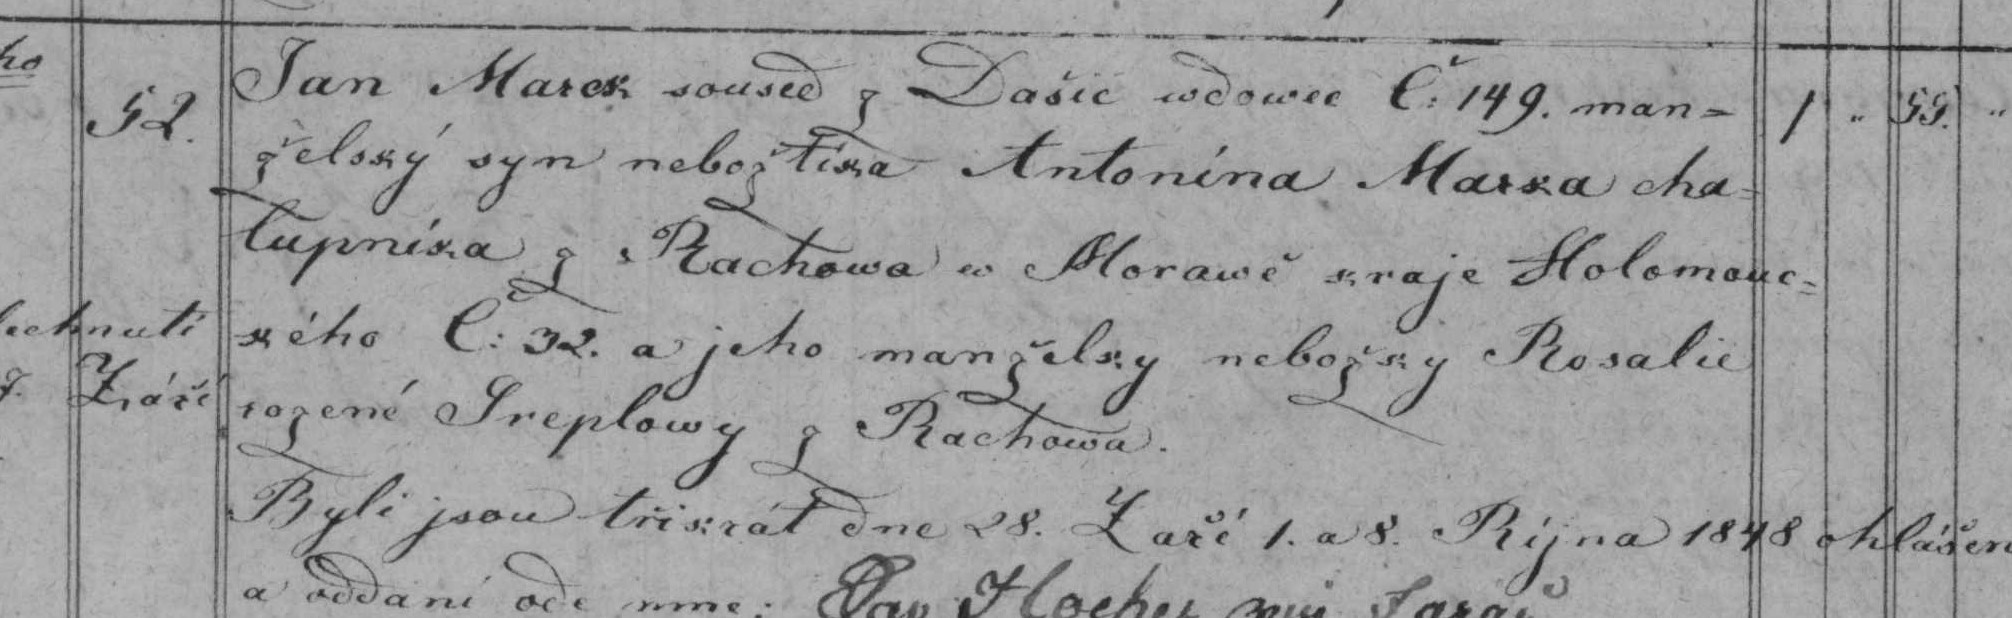 ho
52.
Jan Marek soused z Dašic wdowec Č: 149. man= 1 " 55. "
želský syn nebožtíka Antonína Marka cha=
lupníka z Rachowa w Morawě kraje Holomouc=
ského Č: 32. a jeho manželky nebožky Rosalie
7. Září rozené Sreplowy z Rachowa.
Byli jsou třikrát dne 28. Zaří 1. a 8. Října 1848 ohlášeni
a oddaní ode mne: